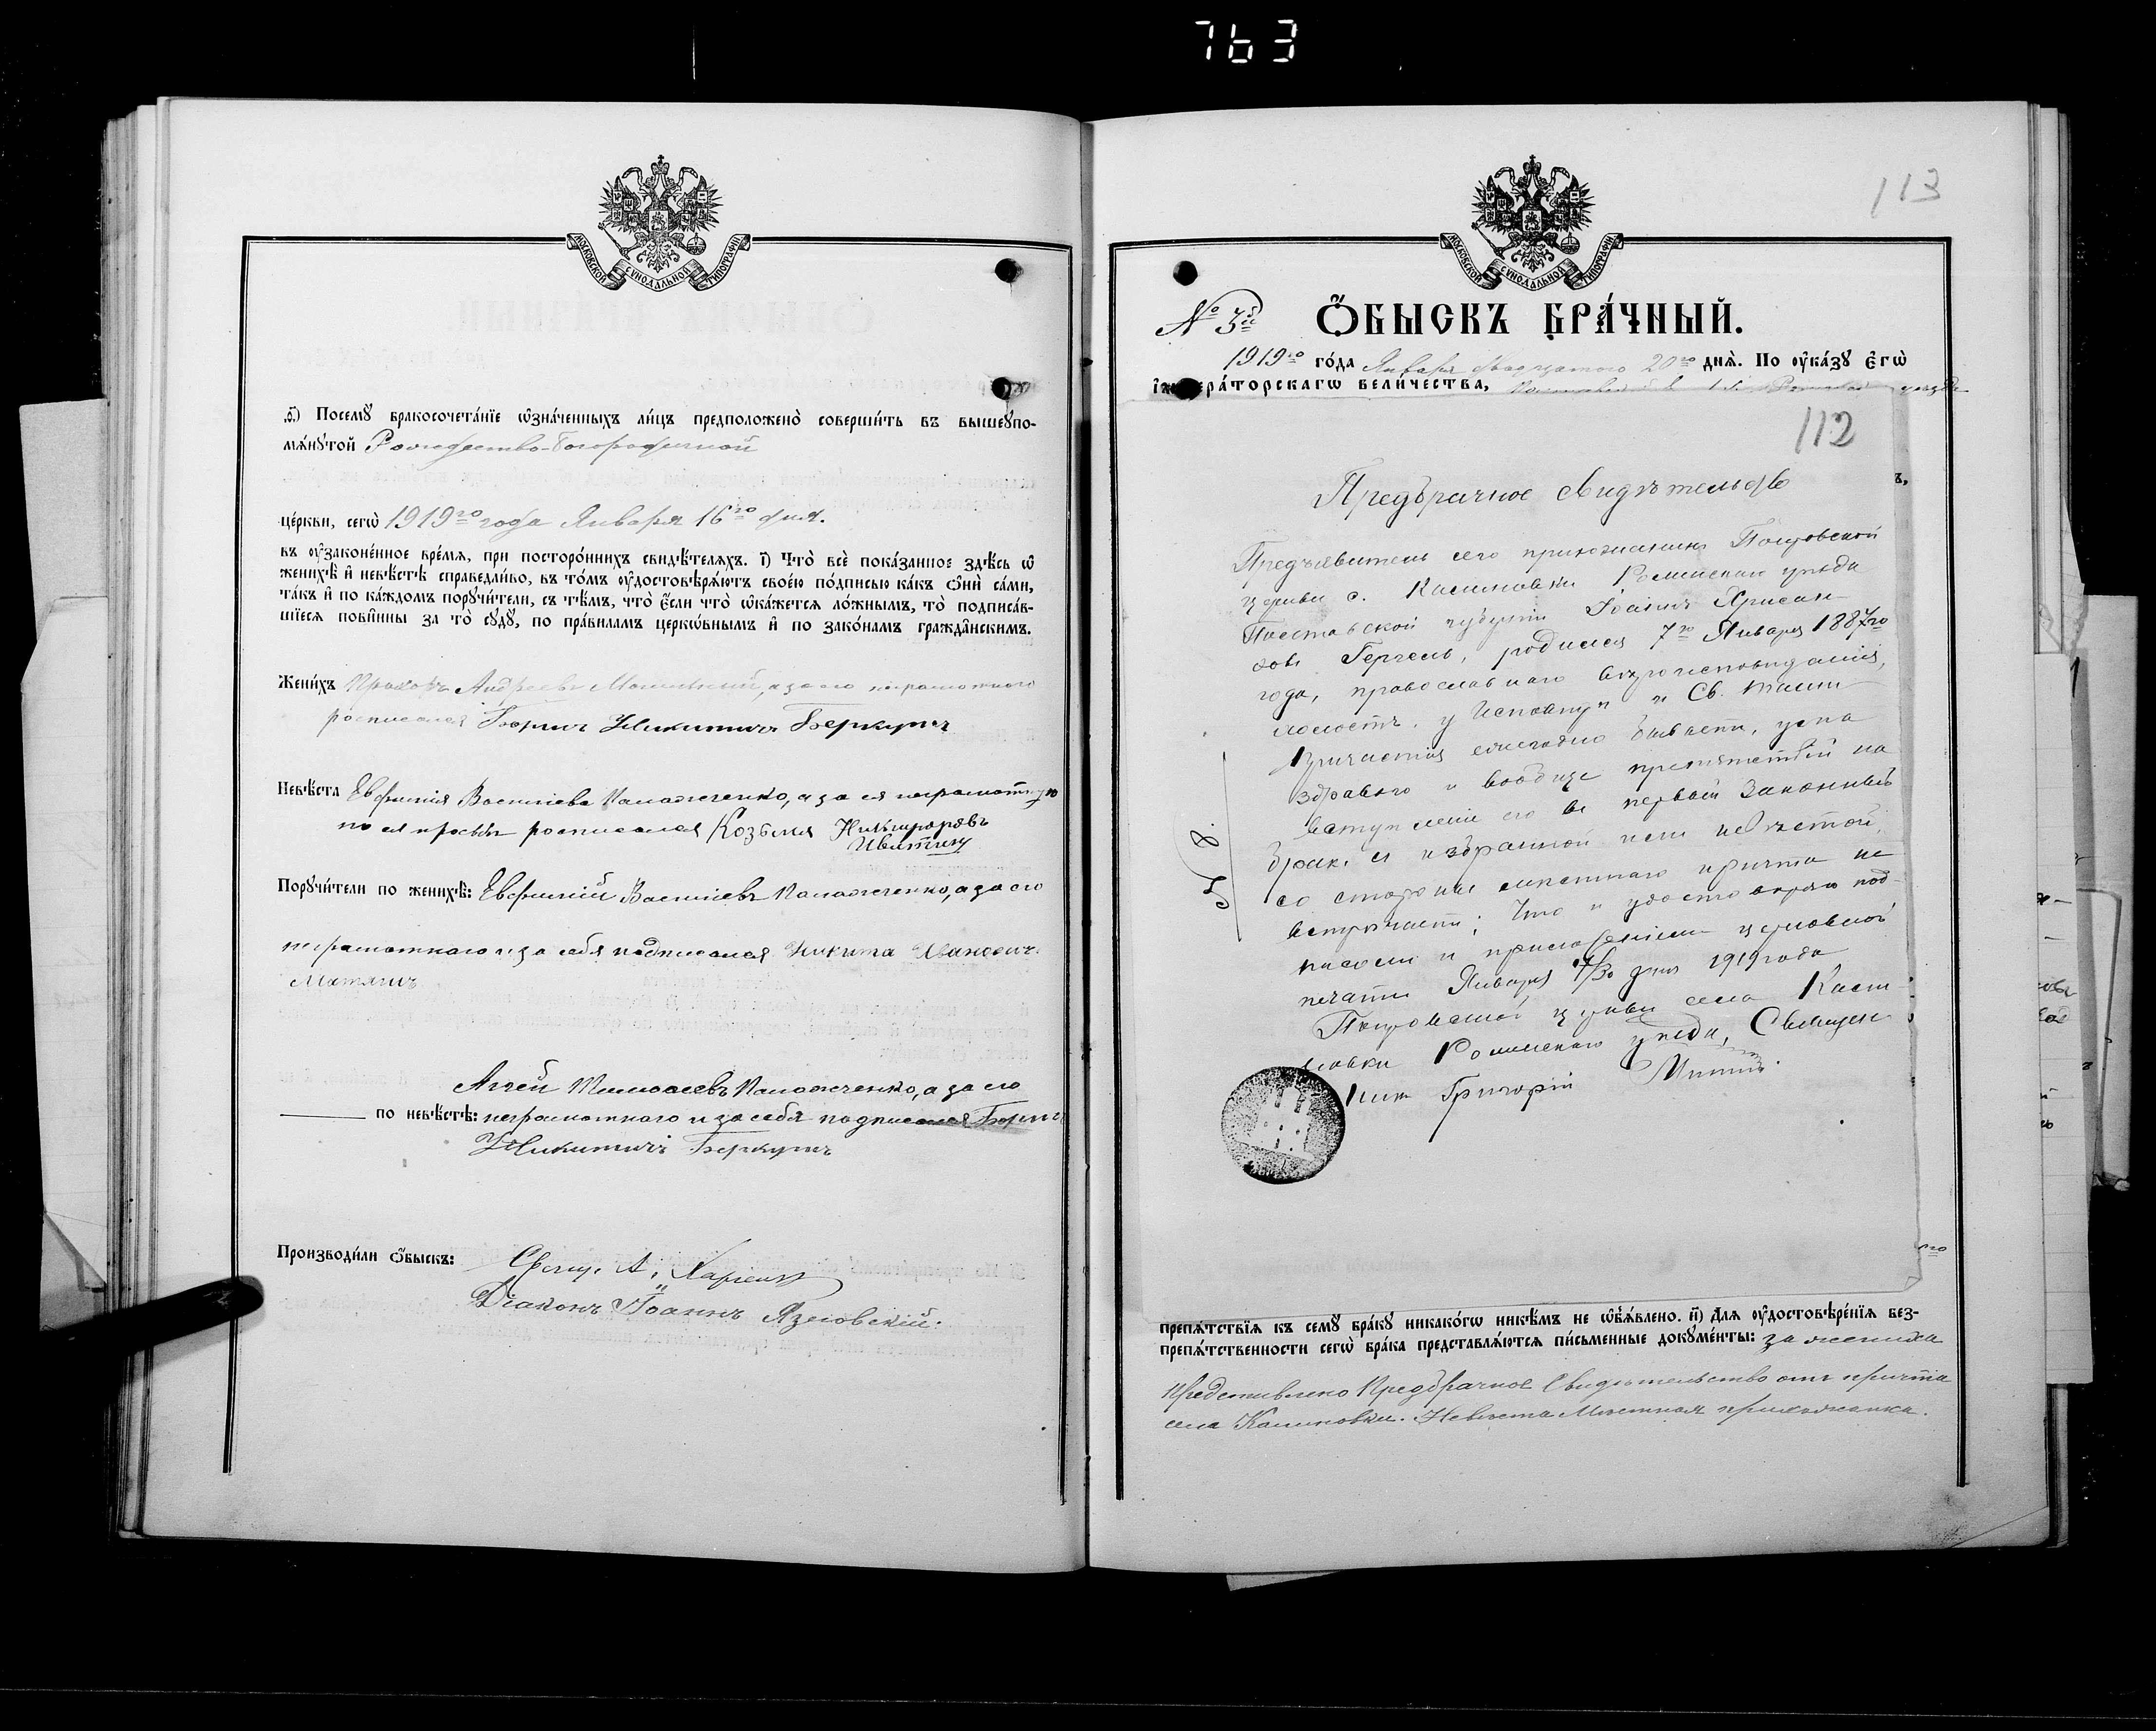 763
МОСКОВСКОЙ СѴНОДАЛЬНОЙ ТИПОГРАФІИ
Посемꙋ бракосочетáнїе ѡ҆знáченныхъ ли́цъ предположенò соверши́ть въ вышеꙋпо-
мѧ́нꙋтой Рождество-Богородичной
цéркви, сегѡ̀ 1919го года Января 16го дня.
въ ᲂу҆законéнное врéмѧ, при посторóннихъ свидѣ́телѧхъ. і҃) Чтò всѐ покáзанное здѣ́сь ѡ҆
женихѣ̀ и҆ невѣ́стѣ справедли́во, въ тóмъ ᲂу҆достовѣрѧ́ютъ своéю пóдписью кáкъ ѻ҆нѝ сáми,
тáкъ и҆ по кáждомъ порꙋчи́тели, съ тѣ́мъ, чтò є҆́сли чтò ѡ҆кáжетсѧ лóжнымъ, тò подписáв-
шїесѧ пови́нны за тò сꙋдꙋ̀, по прáвиламъ церкóвнымъ и҆ по закóнамъ граждáнскимъ.
Жени́хъ Андреевъ а за его неграмотного
росписался Борисъ Никитичъ Беркунъ
Невѣ́ста Евфимія Васильева а за ея неграмотную
по ея прозьбѣ росписался Козьма Никифоровъ
Порꙋчи́тели по женихѣ̀: Евфимій Васильевъ а за его
неграмотнаго и за себя подписался Никита Ивановичъ
Авгей Тимофеевъ а за его
по невѣ́стѣ: неграмотного и за себя подписался Борисъ
Никитичъ Беркунъ
Производи́ли ѻ҆́быскъ: Свящ. А.
Діаконъ Іоаннъ Язловскій.
113
МОСКОВСКОЙ СѴНОДАЛЬНОЙ ТИПОГРАФІИ
№ 3й Ѻ҆́БЫСКЪ БРÁЧНЫЙ.
1919го гóда Января двадцатого 20го днѧ̀. По ᲂу҆кáзꙋ є҆гѡ̀
І҆мперáторскагѡ вели́чества,
112
Предбрачное Свидѣтельство
Предъявитель сего прихожанинъ Покровской
церкви с. Калиновки Роменскаго уѣзда
Полтавской губерніи Іоаннъ Хрисан-
ѳовъ родился 7го Января 1887го
года, православнаго вѣроисповѣданія,
холостъ, у Исповѣди и Св. Таинъ
Причастія ежегодно бываетъ, ума
здраваго и вообще препятствій на
вступленіе его въ первый законный
бракъ съ избранной имъ невѣстой,
со стороны мѣстнаго причта не
встрѣчаетъ; что и удостовѣряю под-
писомъ и приложеніемъ церковной
печати Января дня 1919 года
Покровской церкви села Кали-
новки Роменскаго уѣзда, Священ-
никъ Григорій
№ 8.
препѧ́тствїѧ къ семꙋ̀ брáкꙋ никакóгѡ никѣ́мъ не ѡ҆б̾ѧ́влено. и҃) Длѧ ᲂу҆достовѣрéнїѧ без-
препѧ́тственности сегѡ̀ брáка представлѧ́ютсѧ пи́сьменные докꙋмéнты: за жениха
представлено Предбрачное Свидѣтельство отъ причта
села Калиновки. Невѣста Мѣстная прихожанка.